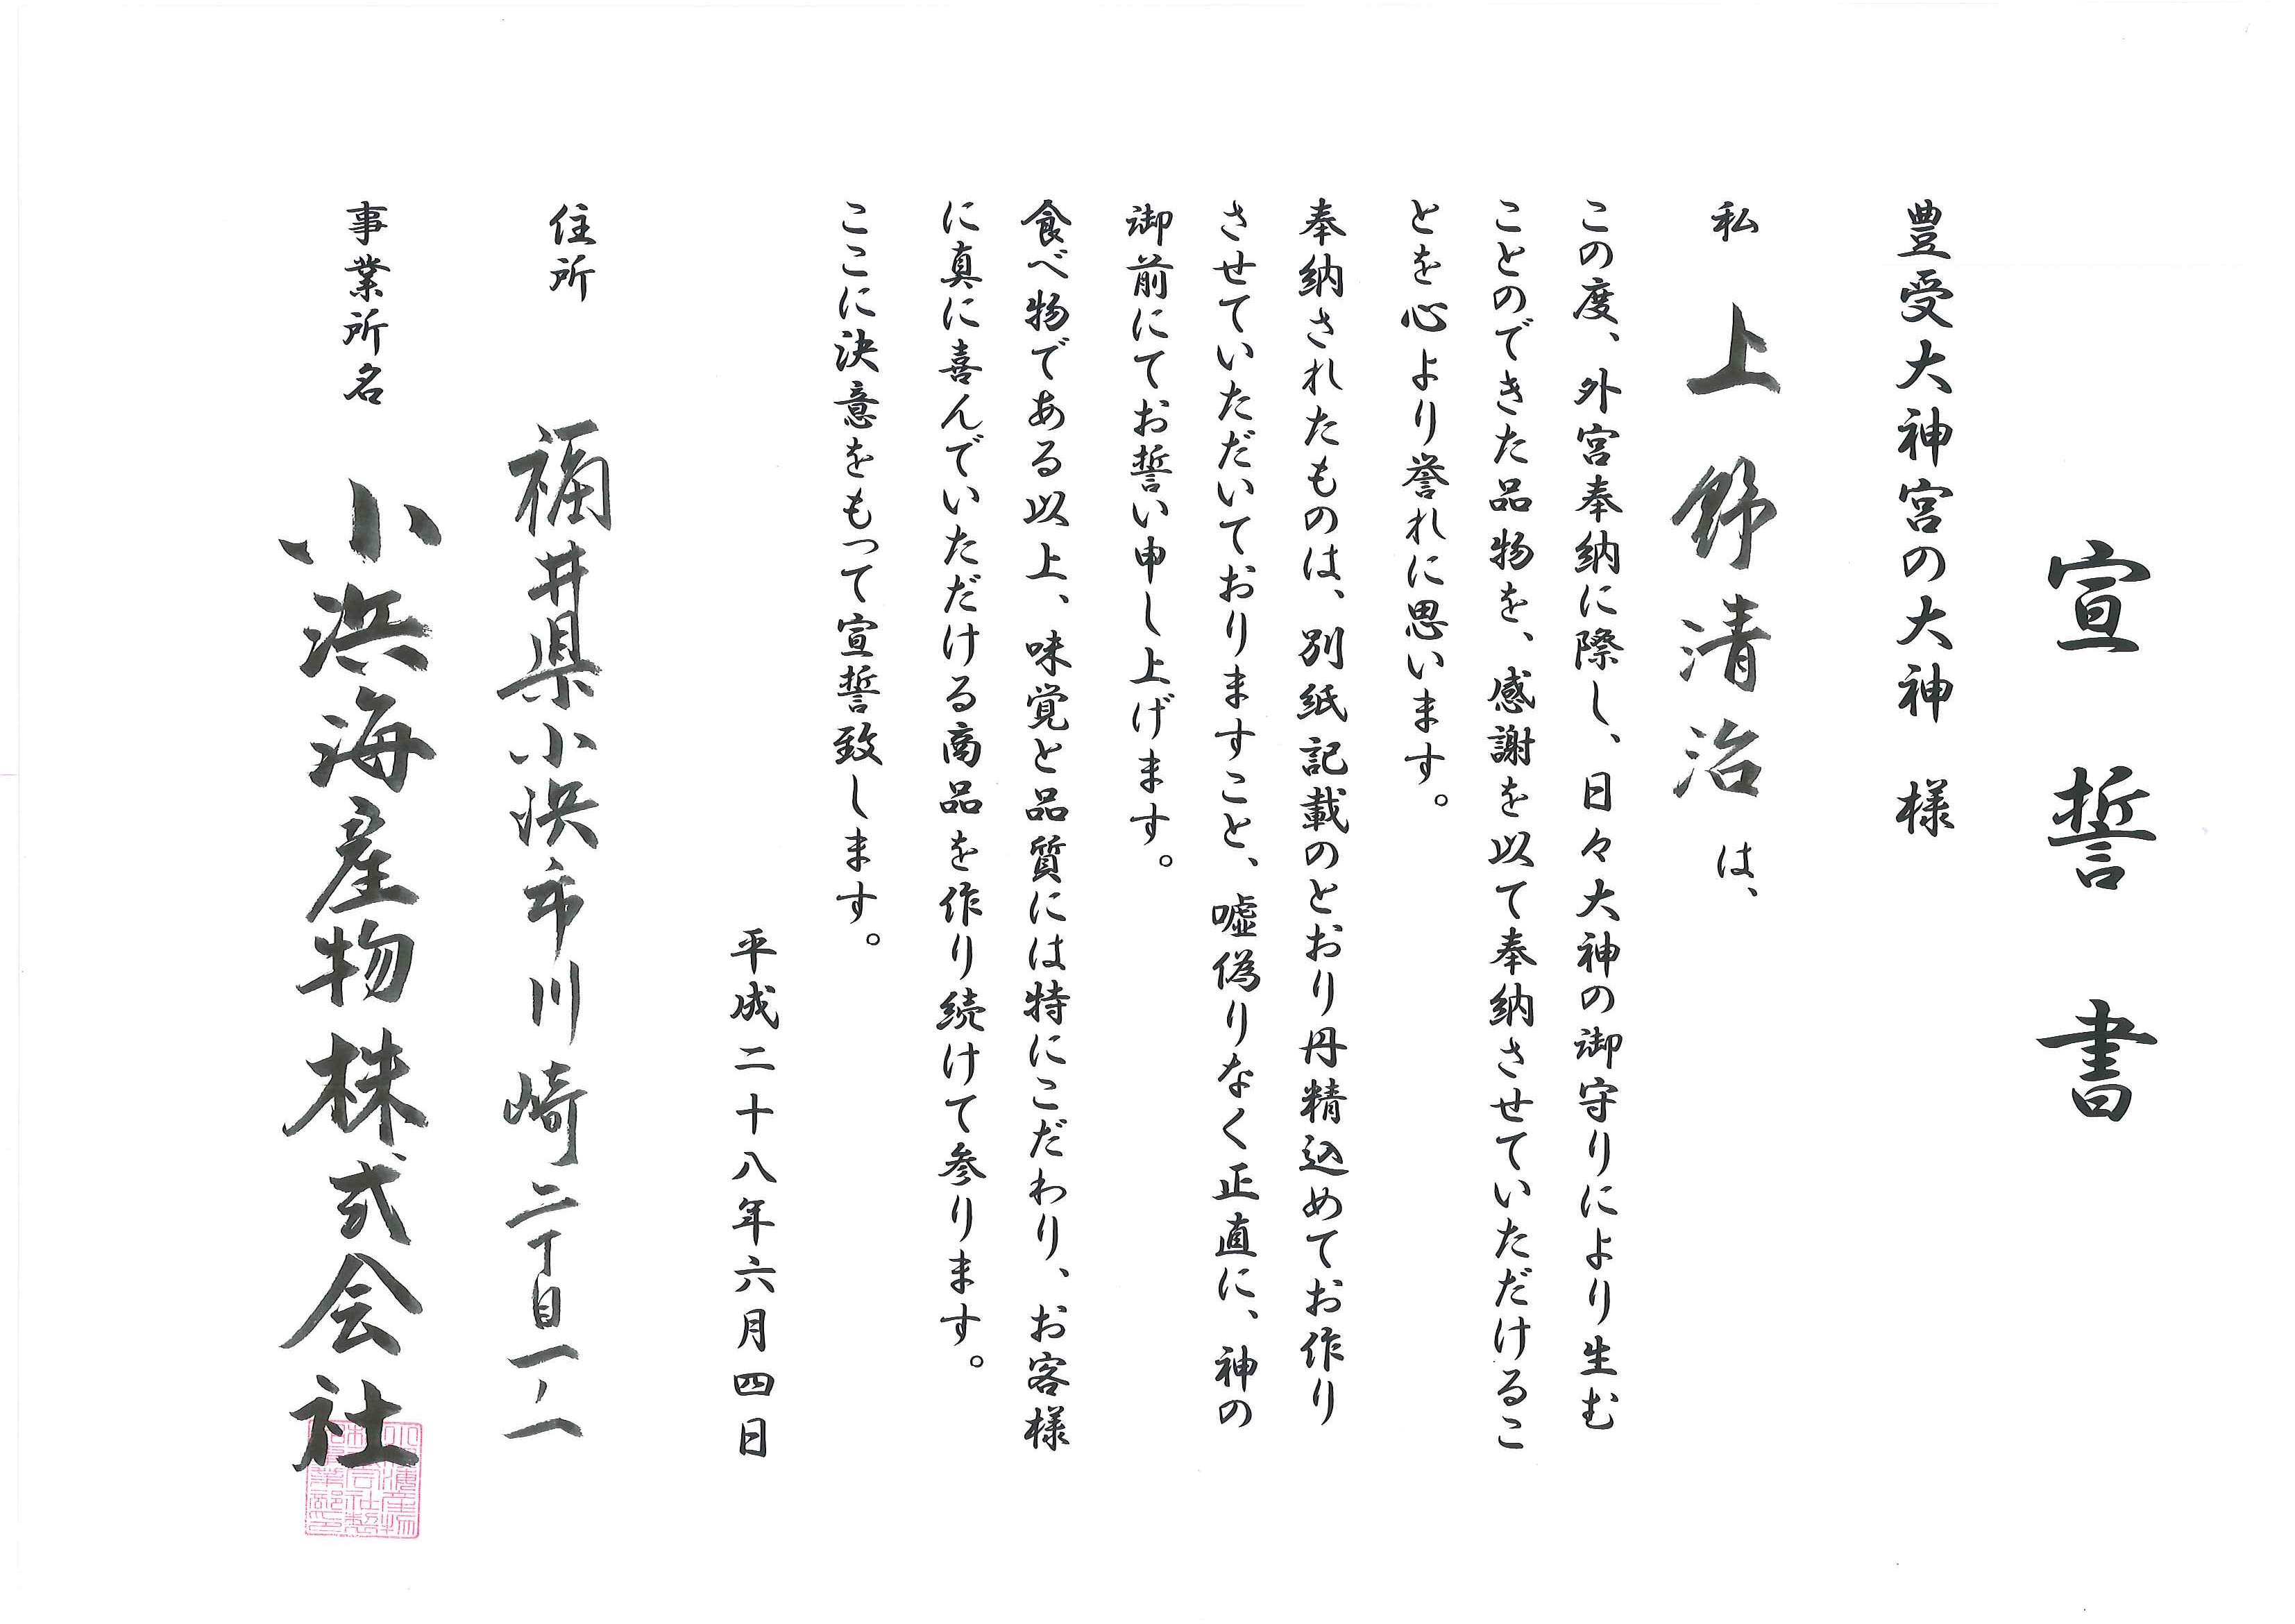 宣誓書
豊受大神宮の大神 様
私 上野清治 は、
この度、外宮奉納に際し、日々大神の御守りにより生む
ことのできた品物を、感謝を以て奉納させていただけるこ
とを心より誉れに思います。
奉納されたものは、別紙記載のとおり丹精込めてお作り
させていただいておりますこと、嘘偽りなく正直に、神の
御前にてお誓い申し上げます。
食べ物である以上、味覚と品質には特にこだわり、お客様
に真に喜んでいただける商品を作り続けて参ります。
ここに決意をもって宣誓致します。
平成二十八年六月四日
住所 福井県小浜市川崎二丁目一ノ一
事業所名 小浜海産物株式会社